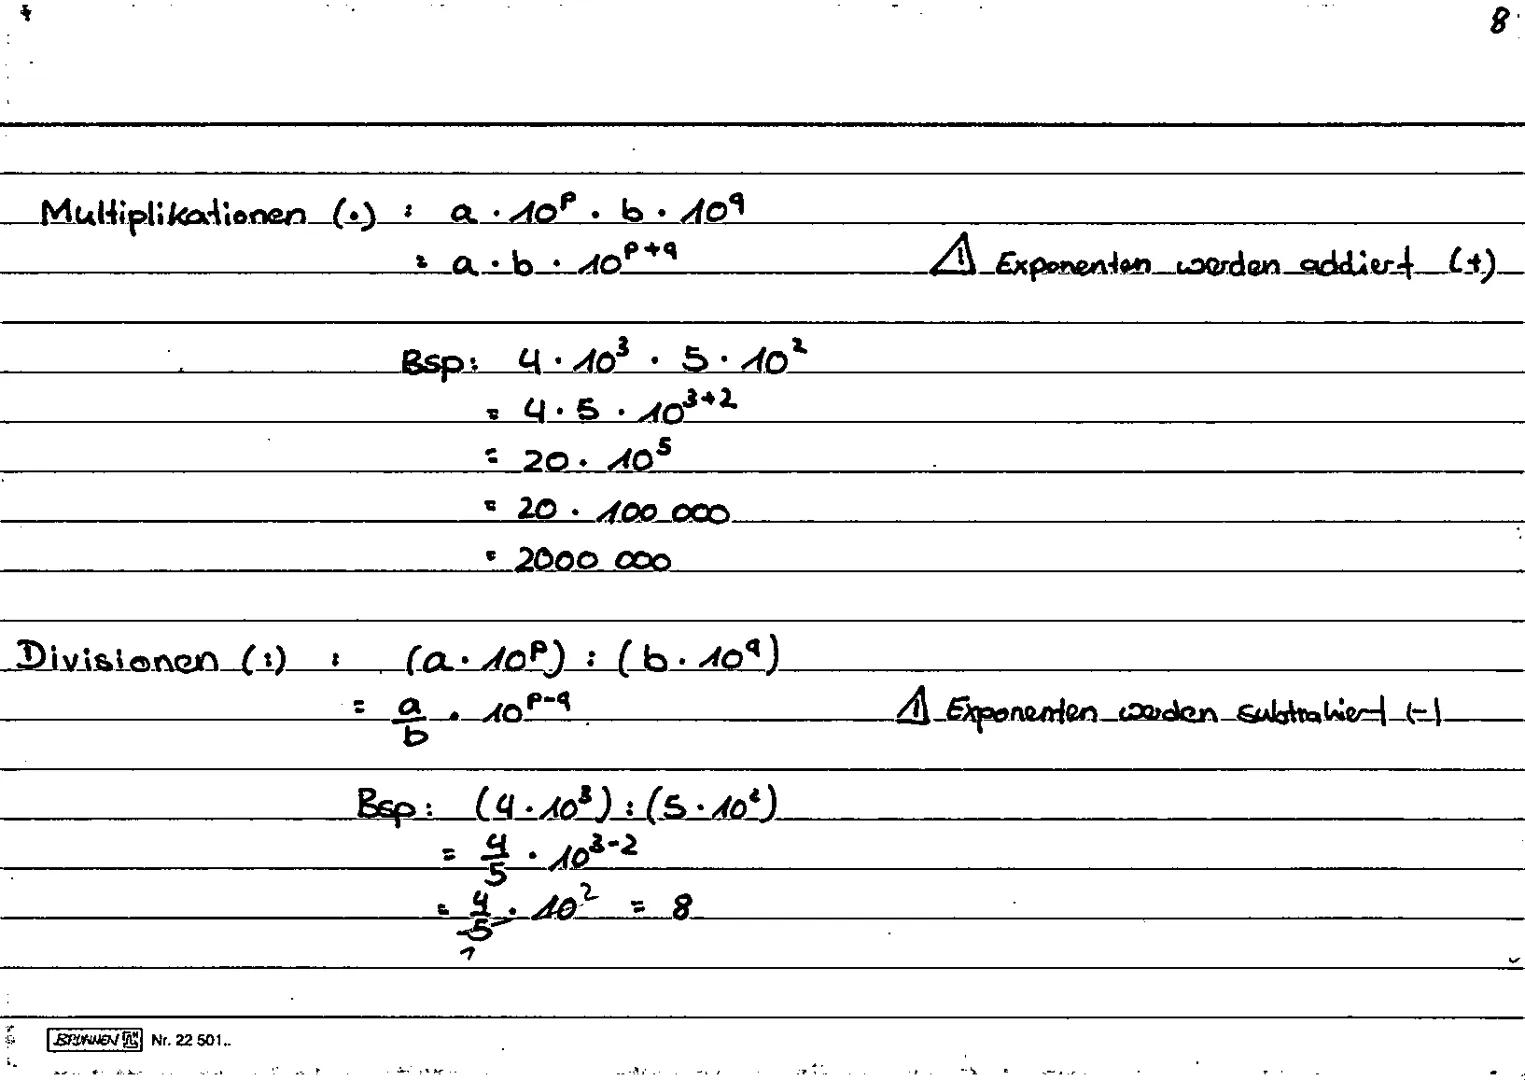 8
Multiplikationen (·) : a · 10^p · b · 10^q
= a · b · 10^(p+q) ⚠ Exponenten werden addiert (+)
Bsp: 4 · 10³ · 5 · 10²
= 4 · 5 · 10³⁺²
= 20 · 10⁵
= 20 · 100 000
= 2000 000
Divisionen (:) : (a · 10^p) : (b · 10^q)
= a/b · 10^(p-q) ⚠ Exponenten werden subtrahiert (-)
Bsp: (4 · 10³) : (5 · 10²)
= 4/5 · 10³⁻²
= 4/5 · 10² = 8
1
BRUNNEN Nr. 22 501..